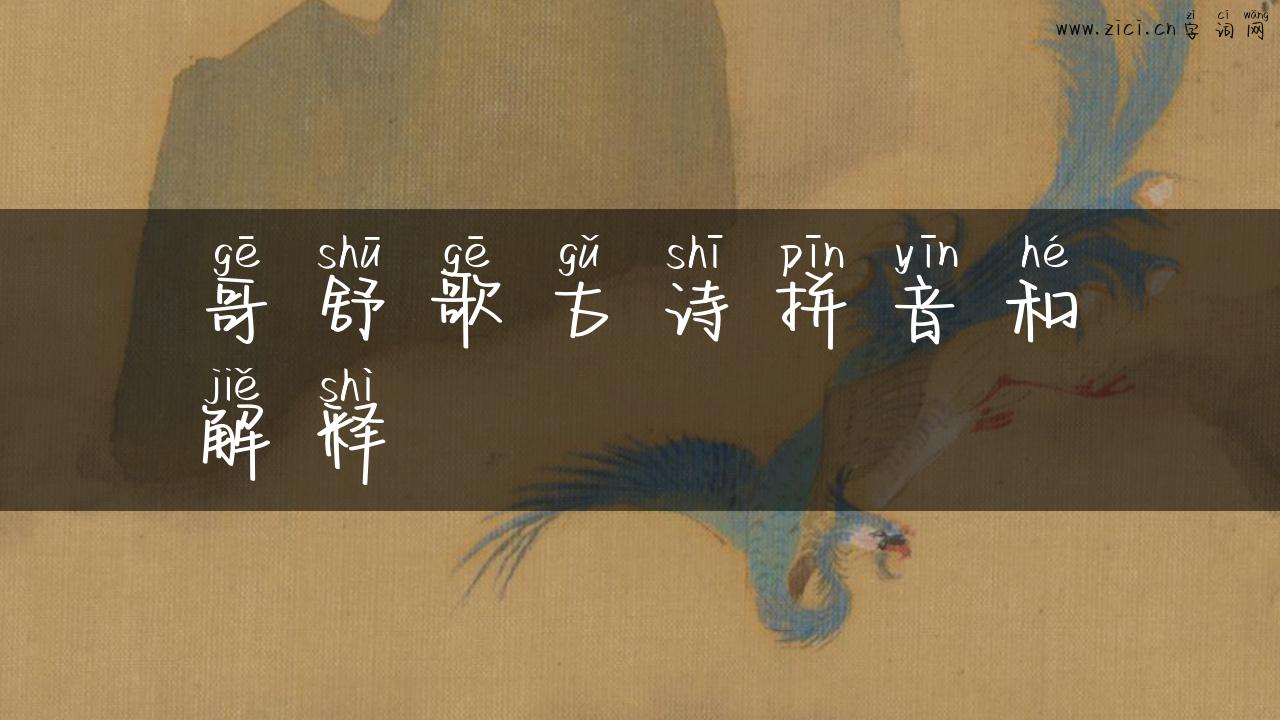 zì cí wǎng
www.zici.cn 字词网
gē shū gē gǔ shī pīn yīn hé
哥舒歌古诗拼音和
jiě shì
解释